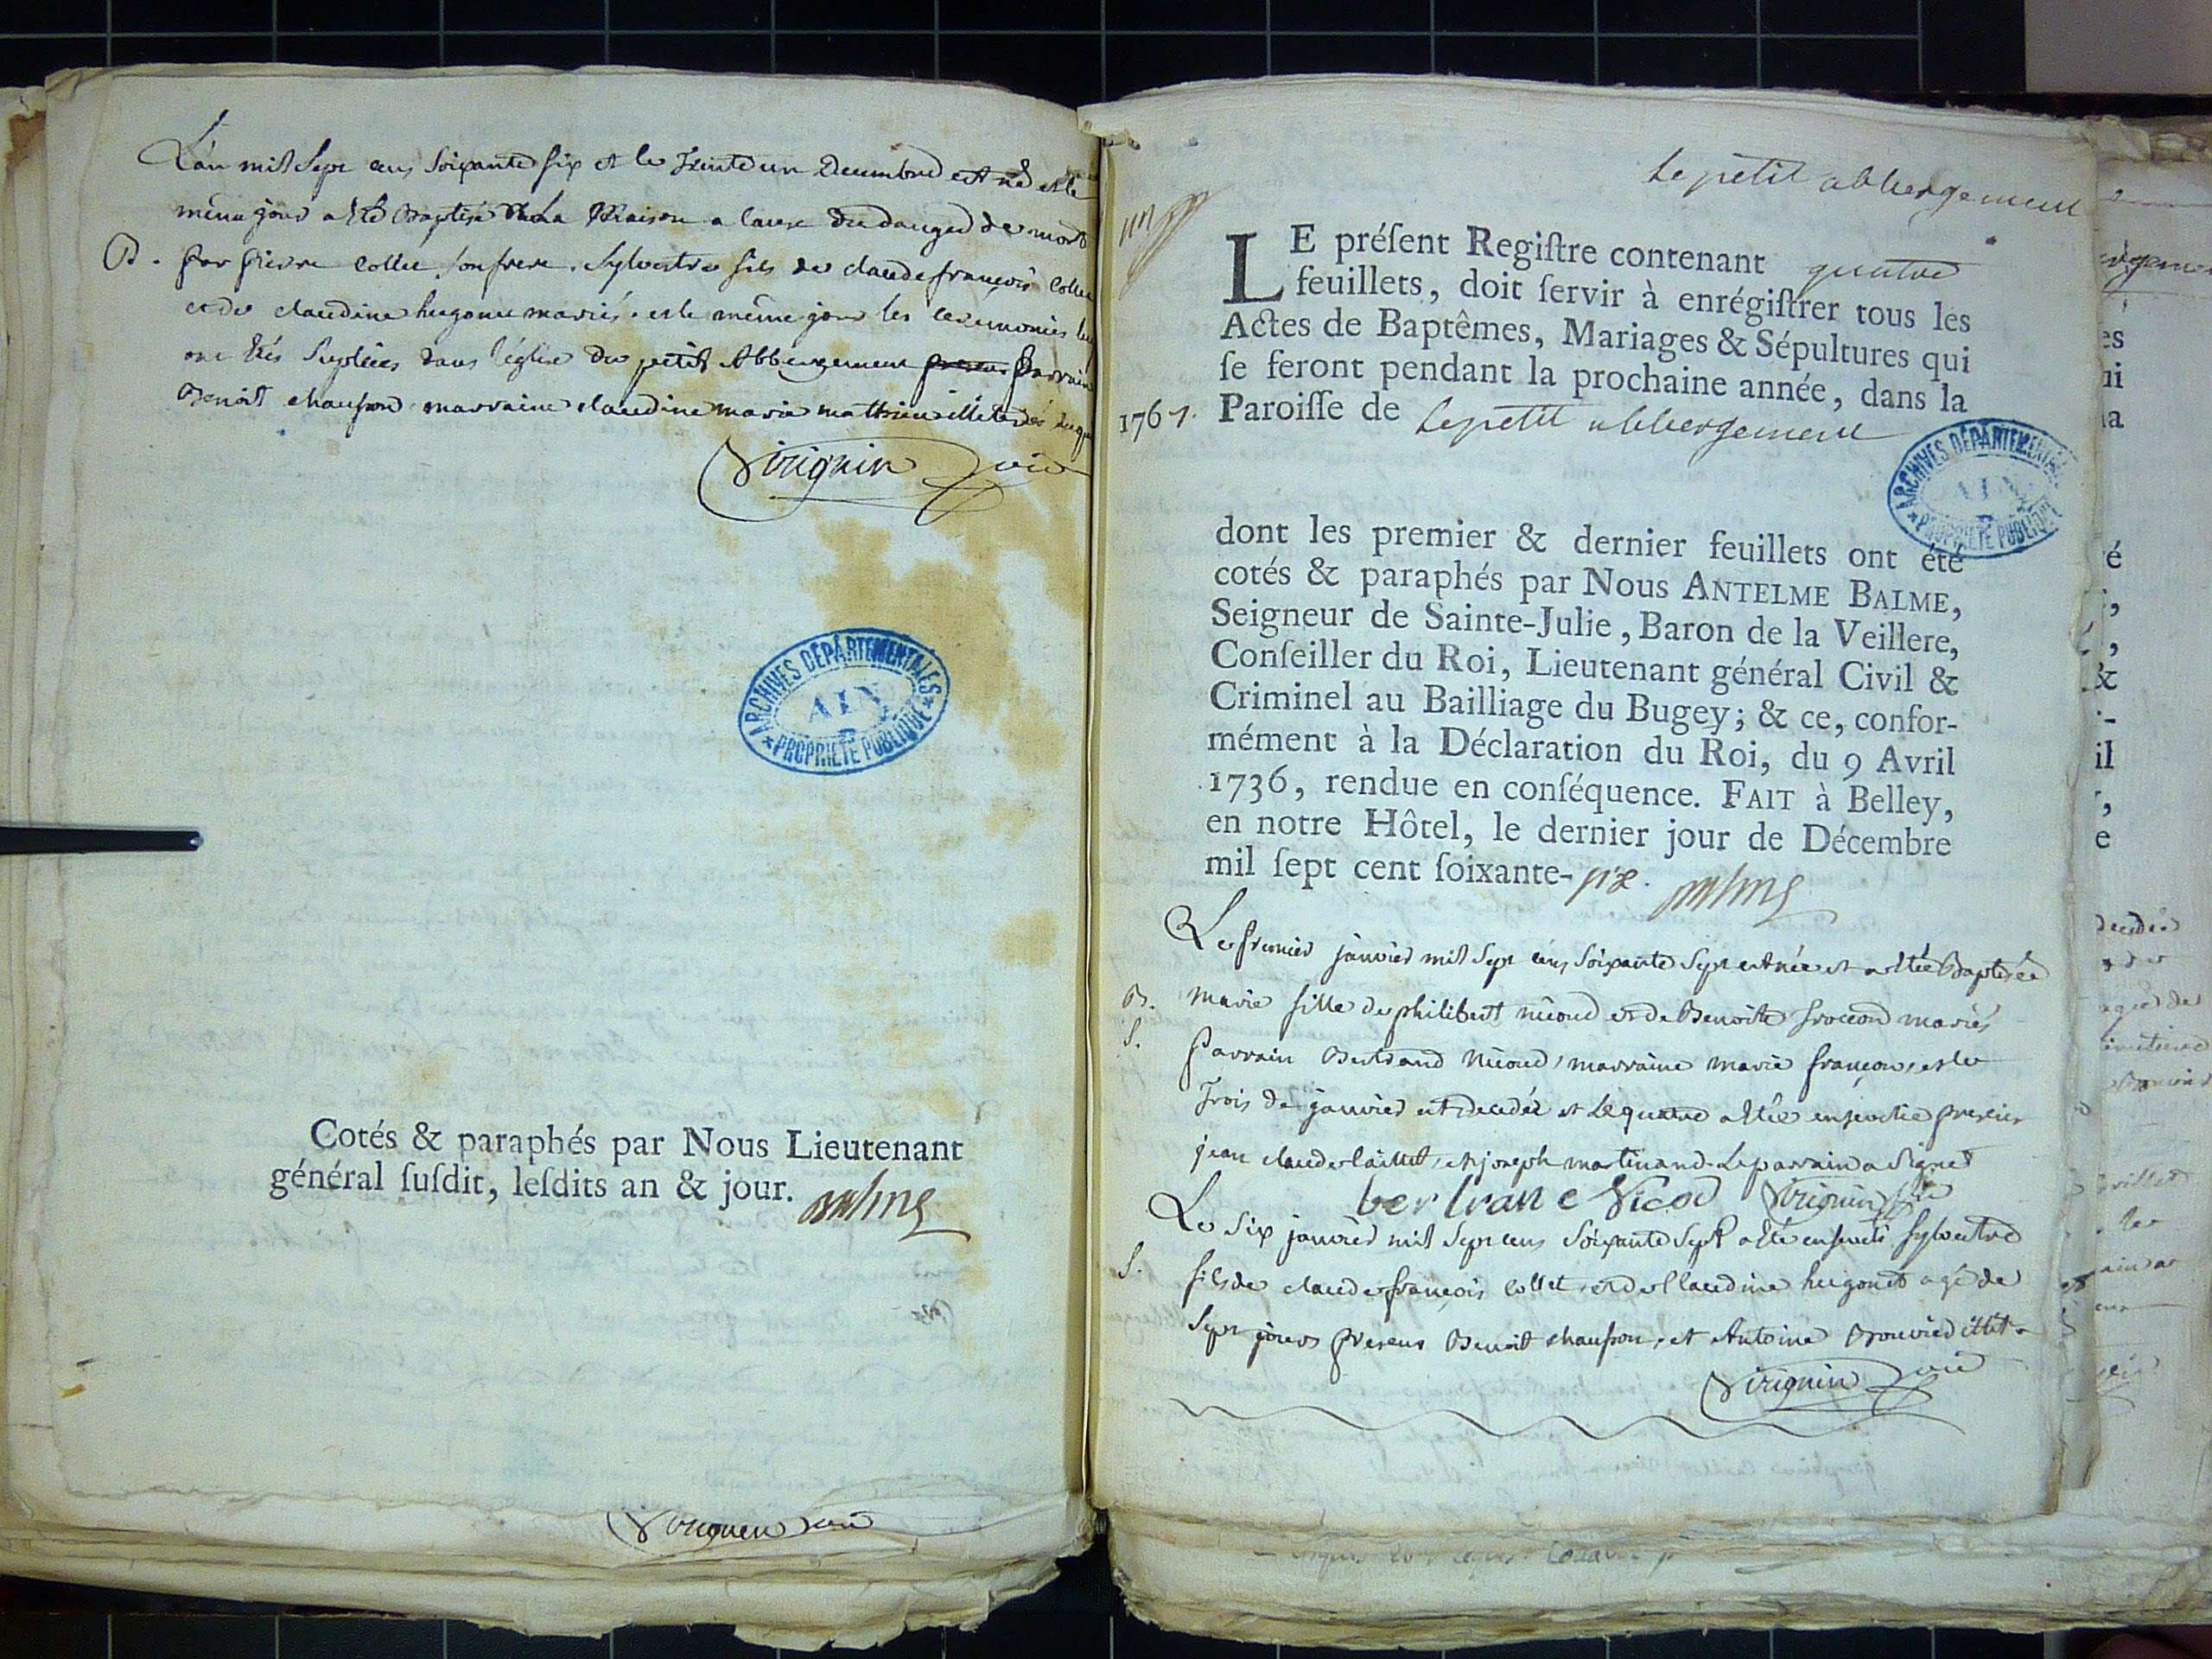 L'an mil sept cens soixante six et le trente un decembre est né et le
même jour a été Baptisé à la Maison a cause du danger de mort
B. par pierre collet son frere. Sylvestre fils de claude françois collet
et de claudine hugonet mariés. et le même jour les ceremonies luy
ont étés supléées dans l'église du petit Abbergement parrain
Benoit chaupon marraine claudine marie mathieu illeterés
Virignin vic
ARCHIVES DÉPARTEMENTALES
AIN
PROPRIÉTÉ PUBLIQUE
Cotés & paraphés par Nous Lieutenant
général ſuſdit, leſdits an & jour. Balme
Virignin vic
Le petit abbergement
LE préſent Regiſtre contenant quatre
feuillets, doit ſervir à enrégiſtrer tous les
Actes de Baptêmes, Mariages & Sépultures qui
ſe feront pendant la prochaine année, dans la
1767. Paroiſſe de Le petit abbergement
ARCHIVES DÉPARTEMENTALES
AIN
PROPRIÉTÉ PUBLIQUE
dont les premier & dernier feuillets ont été
cotés & paraphés par Nous ANTELME BALME,
Seigneur de Sainte-Julie, Baron de la Veillere,
Conſeiller du Roi, Lieutenant général Civil &
Criminel au Bailliage du Bugey; & ce, confor-
mément à la Déclaration du Roi, du 9 Avril
1736, rendue en conſéquence. FAIT à Belley,
en notre Hôtel, le dernier jour de Décembre
mil ſept cent ſoixante-six. Balme
Le premier janvier mil sept cens soixante sept est née et a étée Baptisée
B. marie fille de philibert nicoud et de Benoite mariés
S. parrain Bertrand Nicoud, marraine marie françon, et le
trois de janvier est decedée et le quatre a étée ensevelie presens
jean claude laillet, et joseph martinand. Le parrain a signé
bertrane Nicod Virignin vic
Le six janvier mil sept cens soixante sept a été enseveli Sylvestre
S. fils de claude françois collet, et de Claudine hugonet agé de
sept jours presens Benoit chaupon, et Antoine Brouvier illet.
Virignin vic